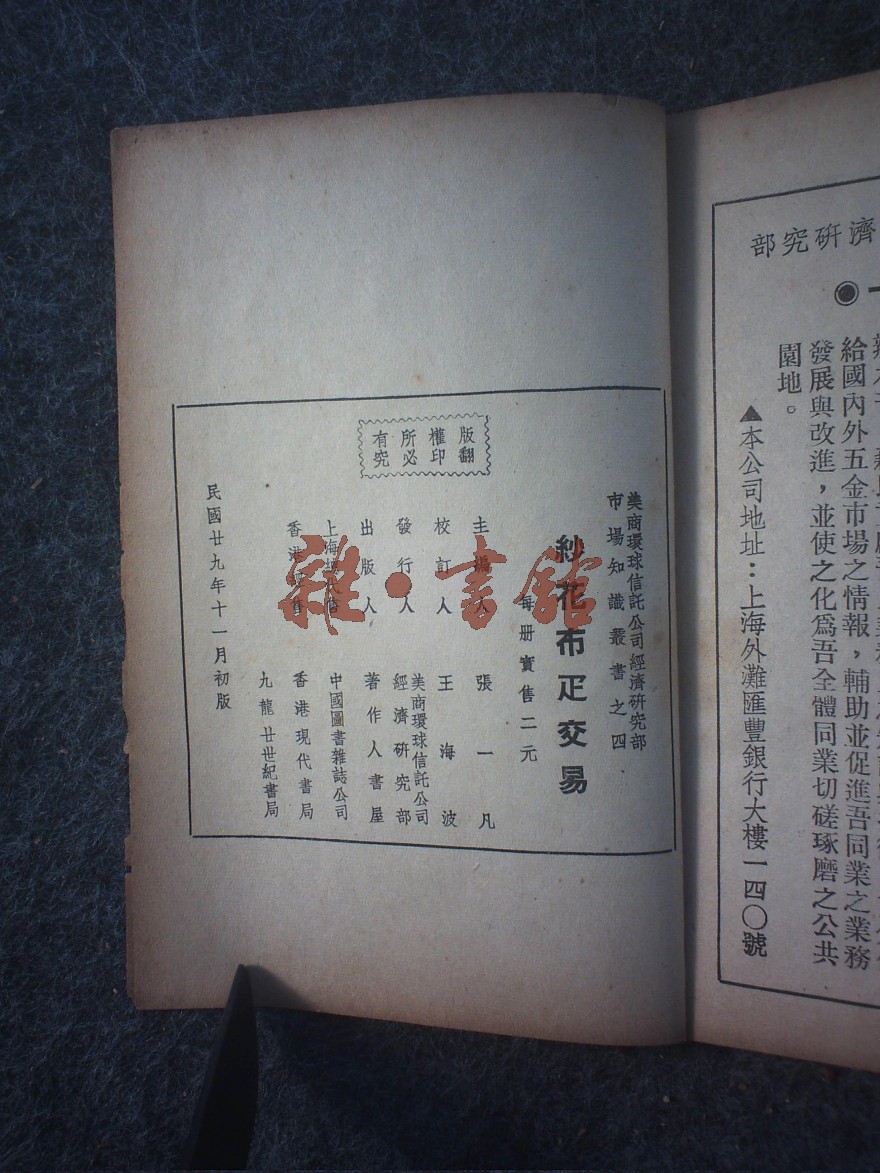 部究硏濟
◉
給國內外五金市場之情報，輔助並促進吾同業之業務
發展與改進，並使之化爲吾全體同業切磋琢磨之公共
園地。
▲本公司地址：上海外灘匯豐銀行大樓一四〇號
美商環球信託公司經濟硏究部
市場知識叢書之四
紗花布疋交易
每册實售二元
版權所有
翻印必究
主編人 張一凡
校訂人 王海波
發行人 美商環球信託公司
經濟硏究部
出版人 著作人書屋
上海 中國圖書雜誌公司
香港 香港現代書局
九龍廿世紀書局
民國廿九年十一月初版
雜·書館